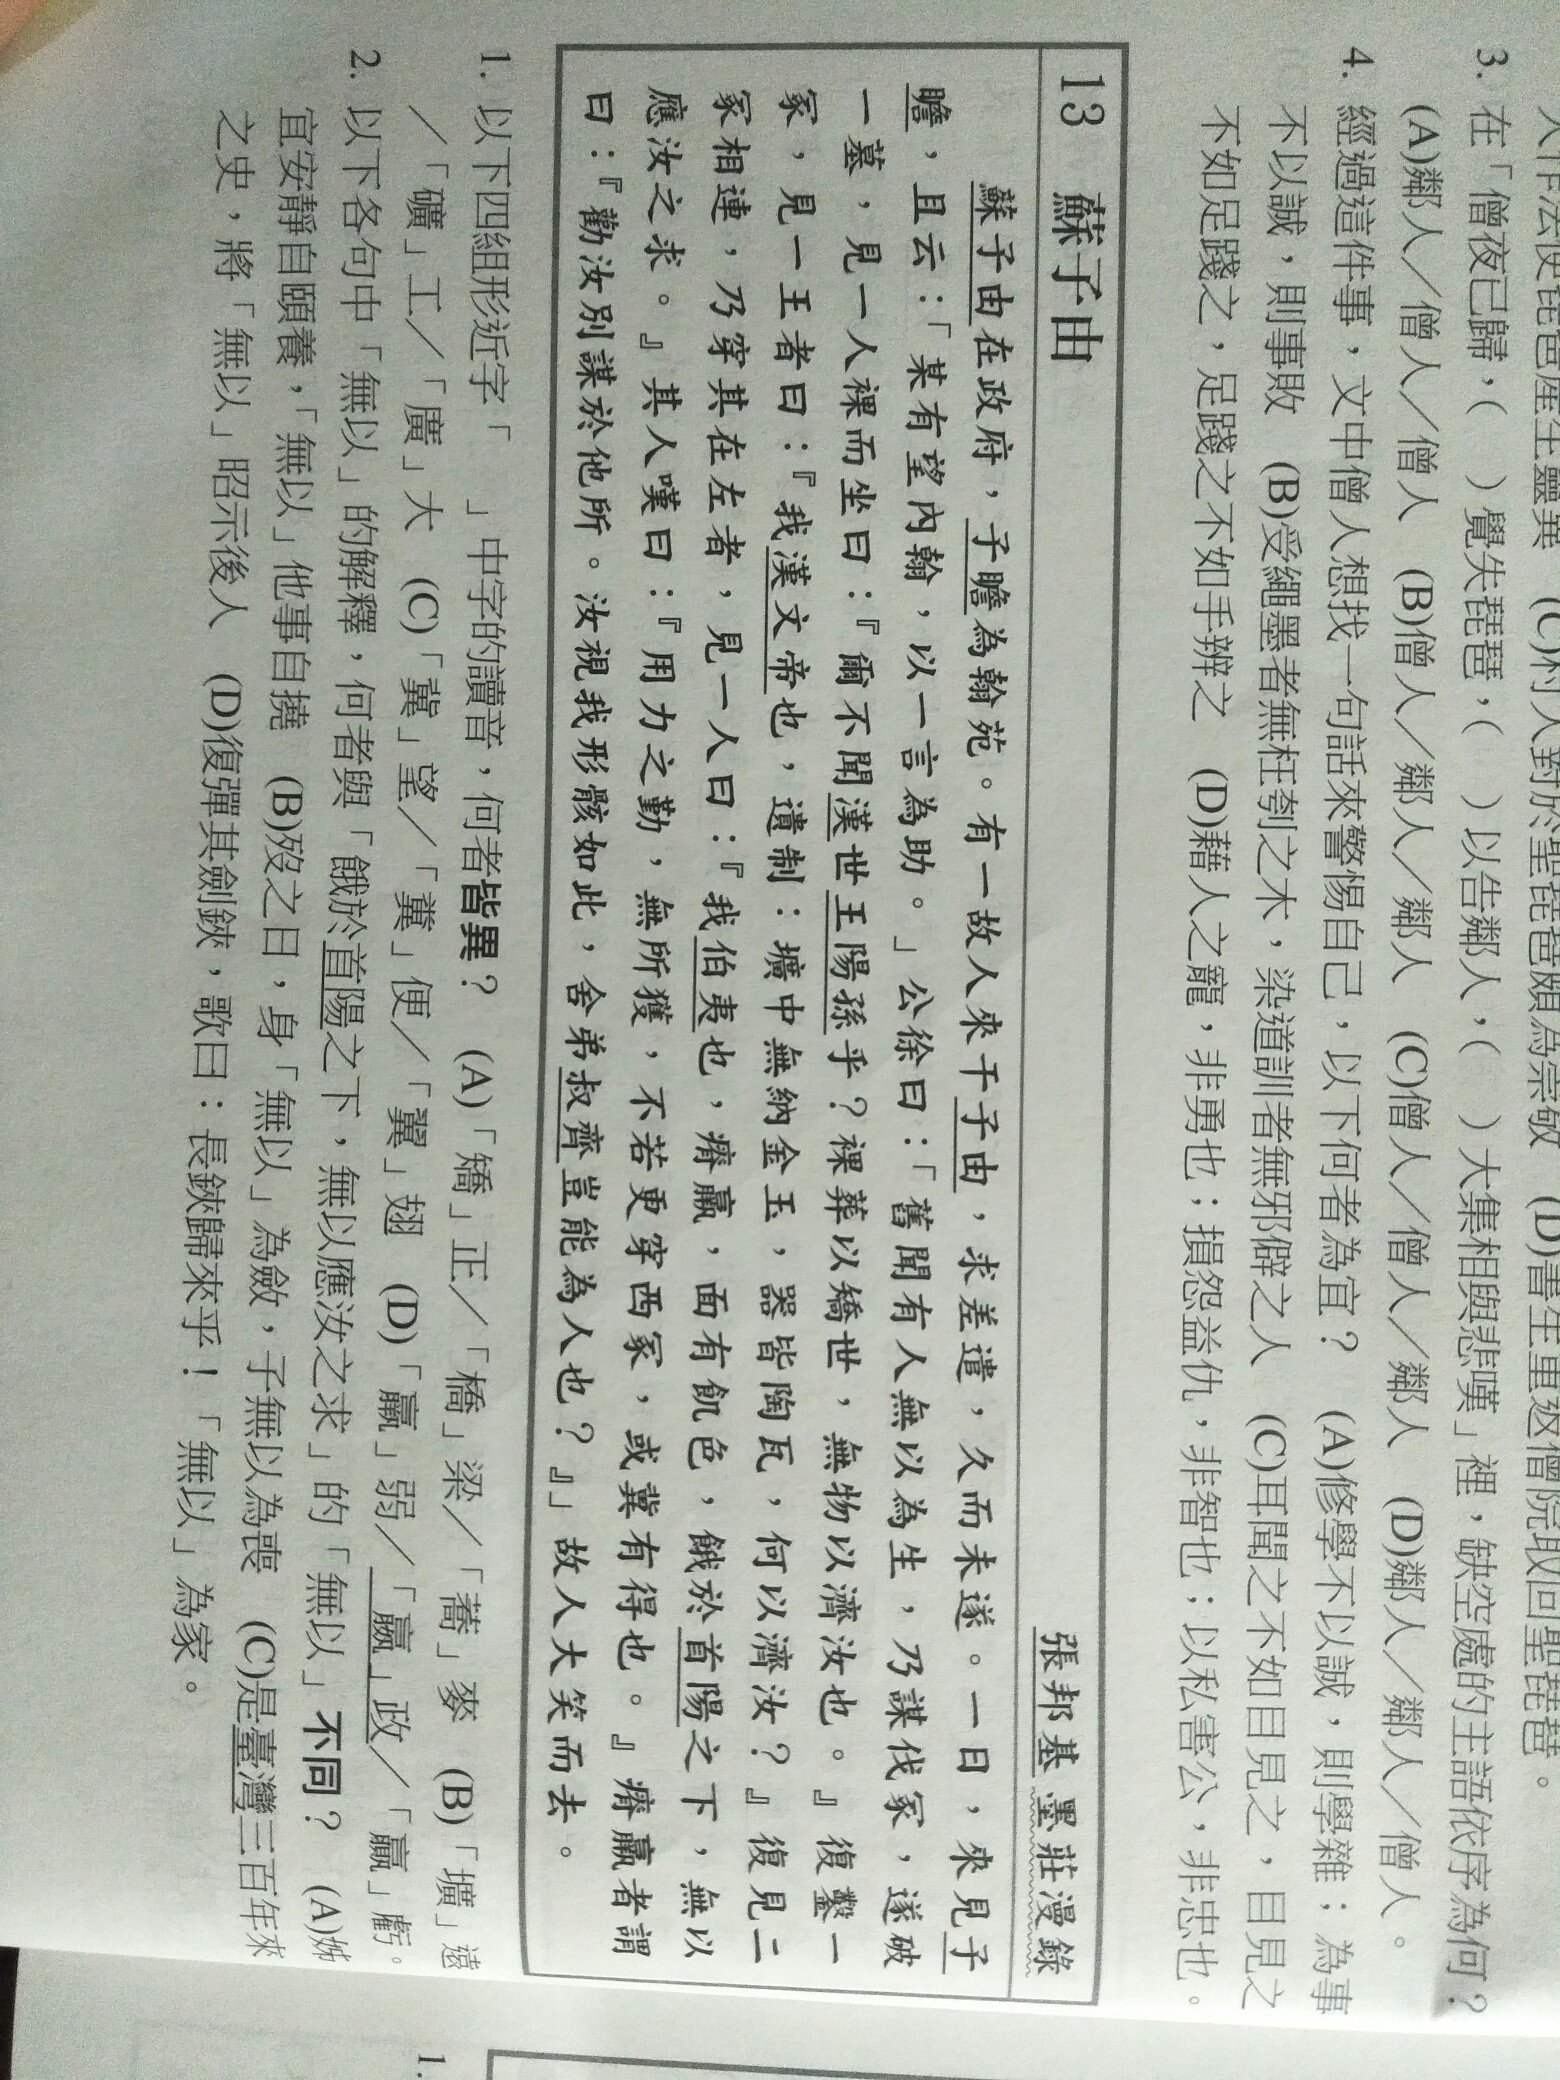 人作法使琵琶產生靈異　(C)村人對於聖琵琶頗為崇敬　(D)書生重返僧院取回聖琵琶。
3. 在「僧夜已歸，(　)覺失琵琶，(　)以告鄰人，(　)大集相與悲嘆」裡，缺空處的主語依序為何？
(A)鄰人／僧人／僧人　(B)僧人／鄰人／鄰人　(C)僧人／僧人／鄰人　(D)鄰人／鄰人／僧人。
4. 經過這件事，文中僧人想找一句話來警惕自己，以下何者為宜？　(A)修學不以誠，則學雜；為事
不以誠，則事敗　(B)受繩墨者無枉刳之木，染道訓者無邪僻之人　(C)耳聞之不如目見之，目見之
不如足踐之，足踐之不如手辨之　(D)藉人之寵，非勇也；損怨益仇，非智也；以私害公，非忠也。
13　蘇子由
張邦基 墨莊漫錄
蘇子由在政府，子瞻為翰苑。有一故人來干子由，求差遣，久而未遂。一日，來見子
瞻，且云：「某有望內翰，以一言為助。」公徐曰：「舊聞有人無以為生，乃謀伐冢，遂破
一墓，見一人裸而坐曰：『爾不聞漢世王陽孫乎？裸葬以矯世，無物以濟汝也。』復鑿一
冢，見一王者曰：『我漢文帝也，遺制：壙中無納金玉，器皆陶瓦，何以濟汝？』復見二
冢相連，乃穿其在左者，見一人曰：『我伯夷也，瘠羸，面有飢色，餓於首陽之下，無以
應汝之求。』其人嘆曰：『用力之勤，無所獲，不若更穿西冢，或冀有得也。』瘠羸者謂
曰：『勸汝別謀於他所。汝視我形骸如此，舍弟叔齊豈能為人也？』」故人大笑而去。
1. 以下四組形近字「　」中字的讀音，何者皆異？　(A)「矯」正／「橋」梁／「蕎」麥　(B)「壙」遠
／「礦」工／「廣」大　(C)「冀」望／「糞」便／「翼」翅　(D)「羸」弱／「嬴」政／「贏」虧。
2. 以下各句中「無以」的解釋，何者與「餓於首陽之下，無以應汝之求」的「無以」不同？　(A)姊
宜安靜自頤養，「無以」他事自撓　(B)歿之日，身「無以」為斂，子無以為喪　(C)是臺灣三百年來
之史，將「無以」昭示後人　(D)復彈其劍鋏，歌曰：長鋏歸來乎！「無以」為家。
1.